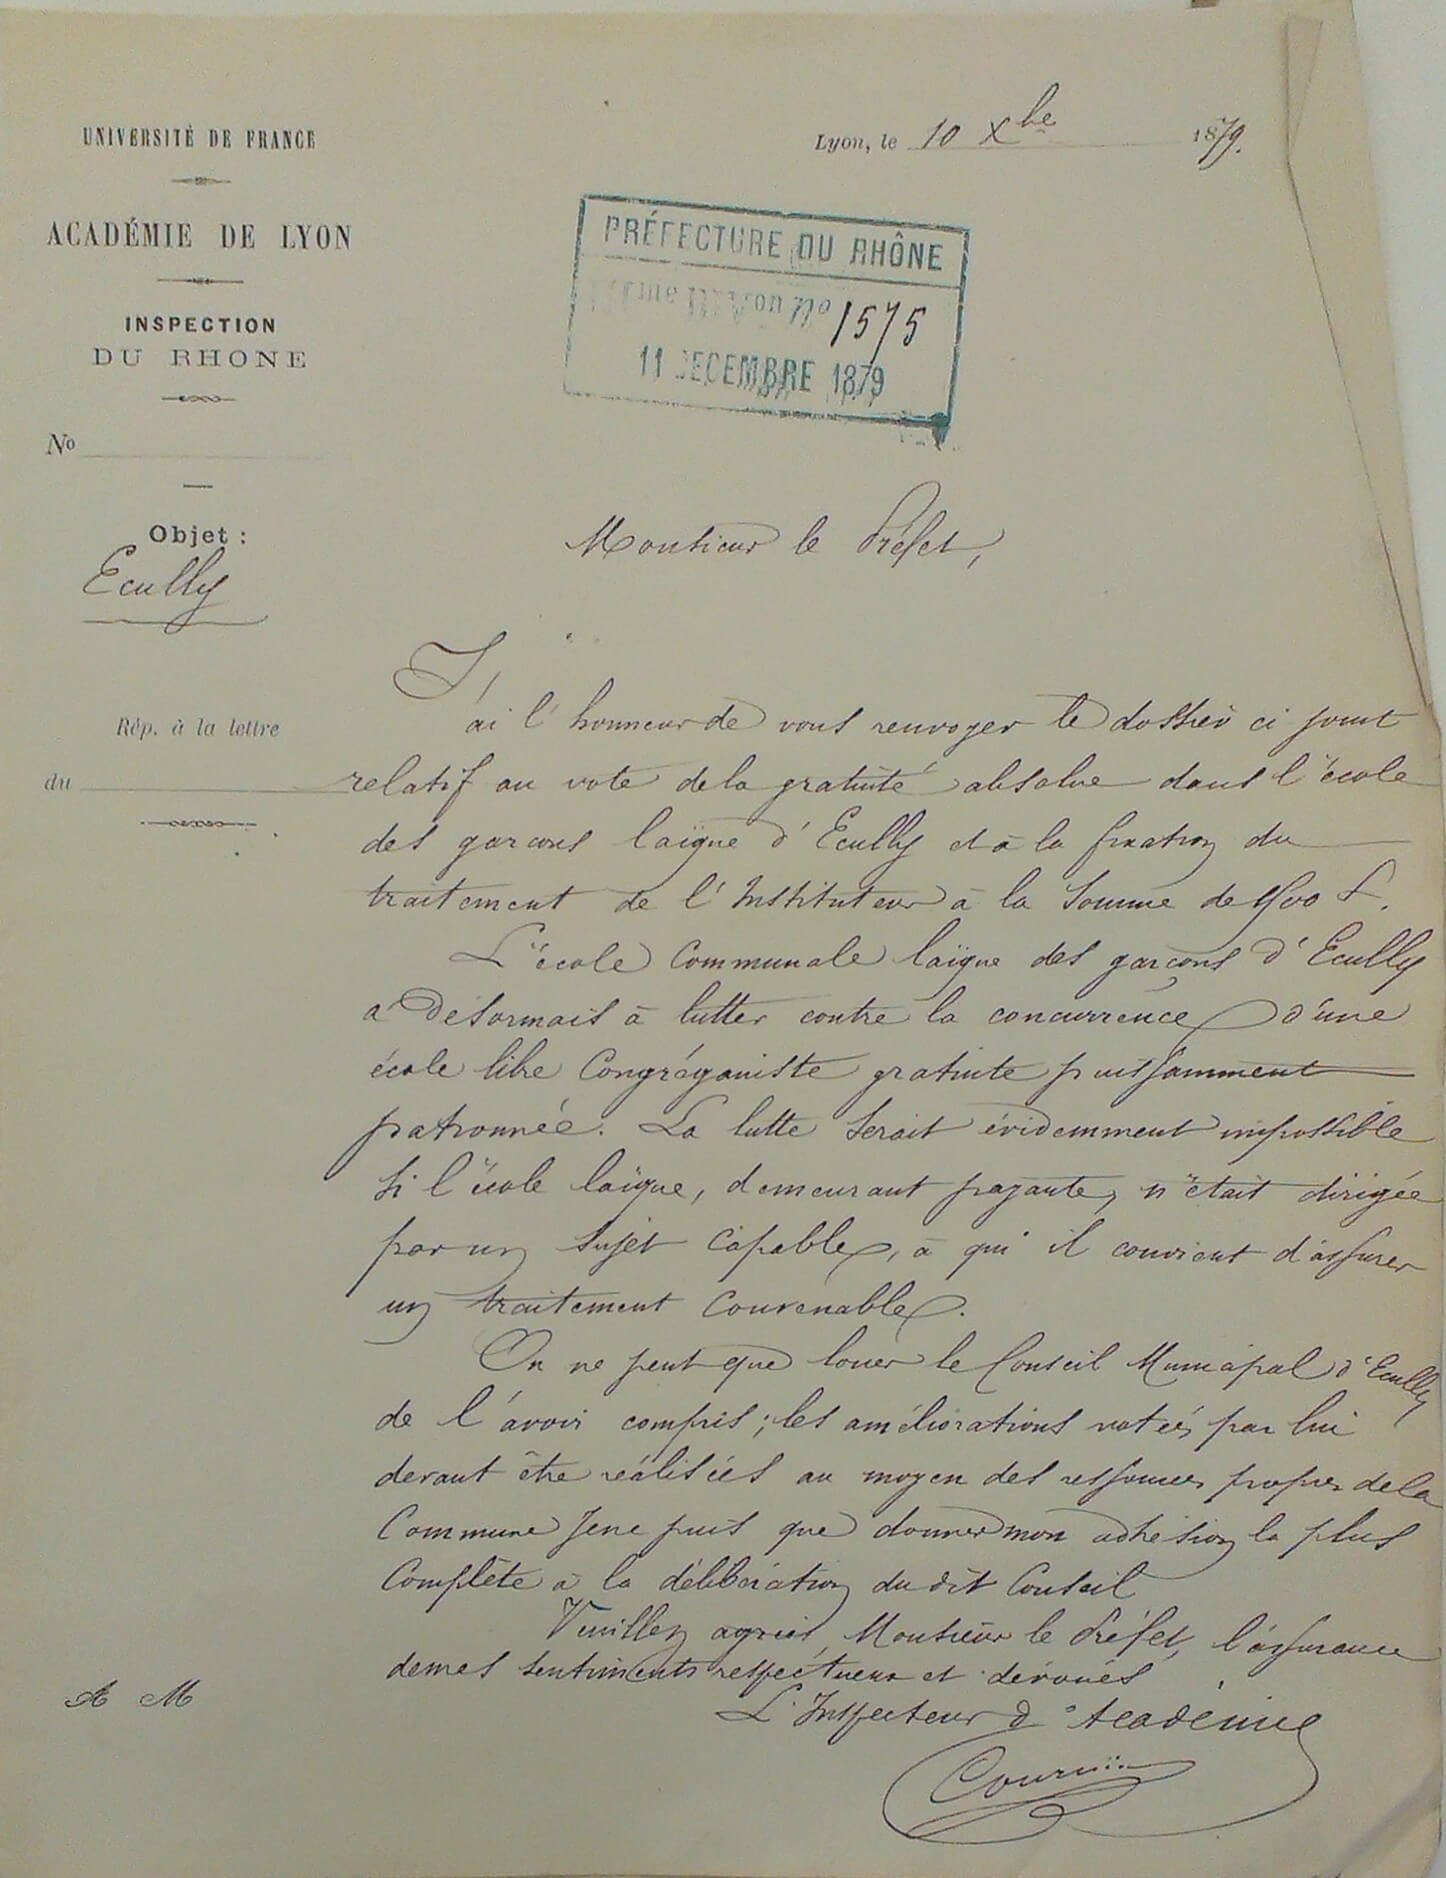 UNIVERSITÉ DE FRANCE
ACADÉMIE DE LYON
INSPECTION
DU RHONE
No
Objet :
Ecully
Rép. à la lettre
du
Lyon, le 10 Xbre 1879.
PRÉFECTURE DU RHÔNE
no 1575
11 DECEMBRE 1879
Monsieur le Préfet,
J'ai l'honneur de vous renvoyer le dossier ci joint
relatif au vote de la gratuité absolue dans l'école
des garçons laïque d'Ecully et à la fixation du
traitement de l'Instituteur à la somme de f.
L'école Communale laïque des garçons d'Ecully
a désormais à lutter contre la concurrence d'une
école libre Congréganiste gratuite puissamment
patronnée. La lutte serait évidemment impossible
si l'école laïque, demeurant payante, n'était dirigée
par un sujet capable, à qui il convient d'assurer
un traitement convenable.
On ne peut que louer le Conseil Municipal d'Ecully
de l'avoir compris ; les améliorations votées par lui
devant être réalisées au moyen des ressources propres de la
Commune Je ne puis que donner mon adhésion la plus
Complète à la délibération du dit Conseil
Veuillez agréer, Monsieur le Préfet, l'assurance
de mes sentiments respectueux et dévoués
L'Inspecteur d'Académie
A M